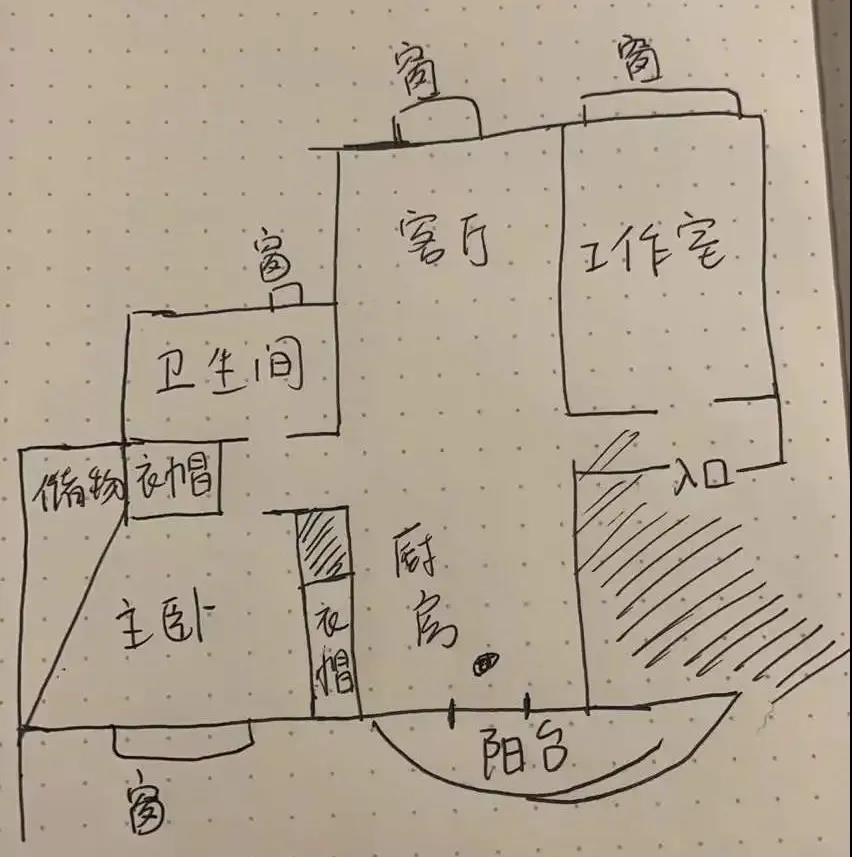 窗
窗
客厅
工作室
窗
卫生间
储物
衣帽
入口
厨房
主卧
衣帽
阳台
窗